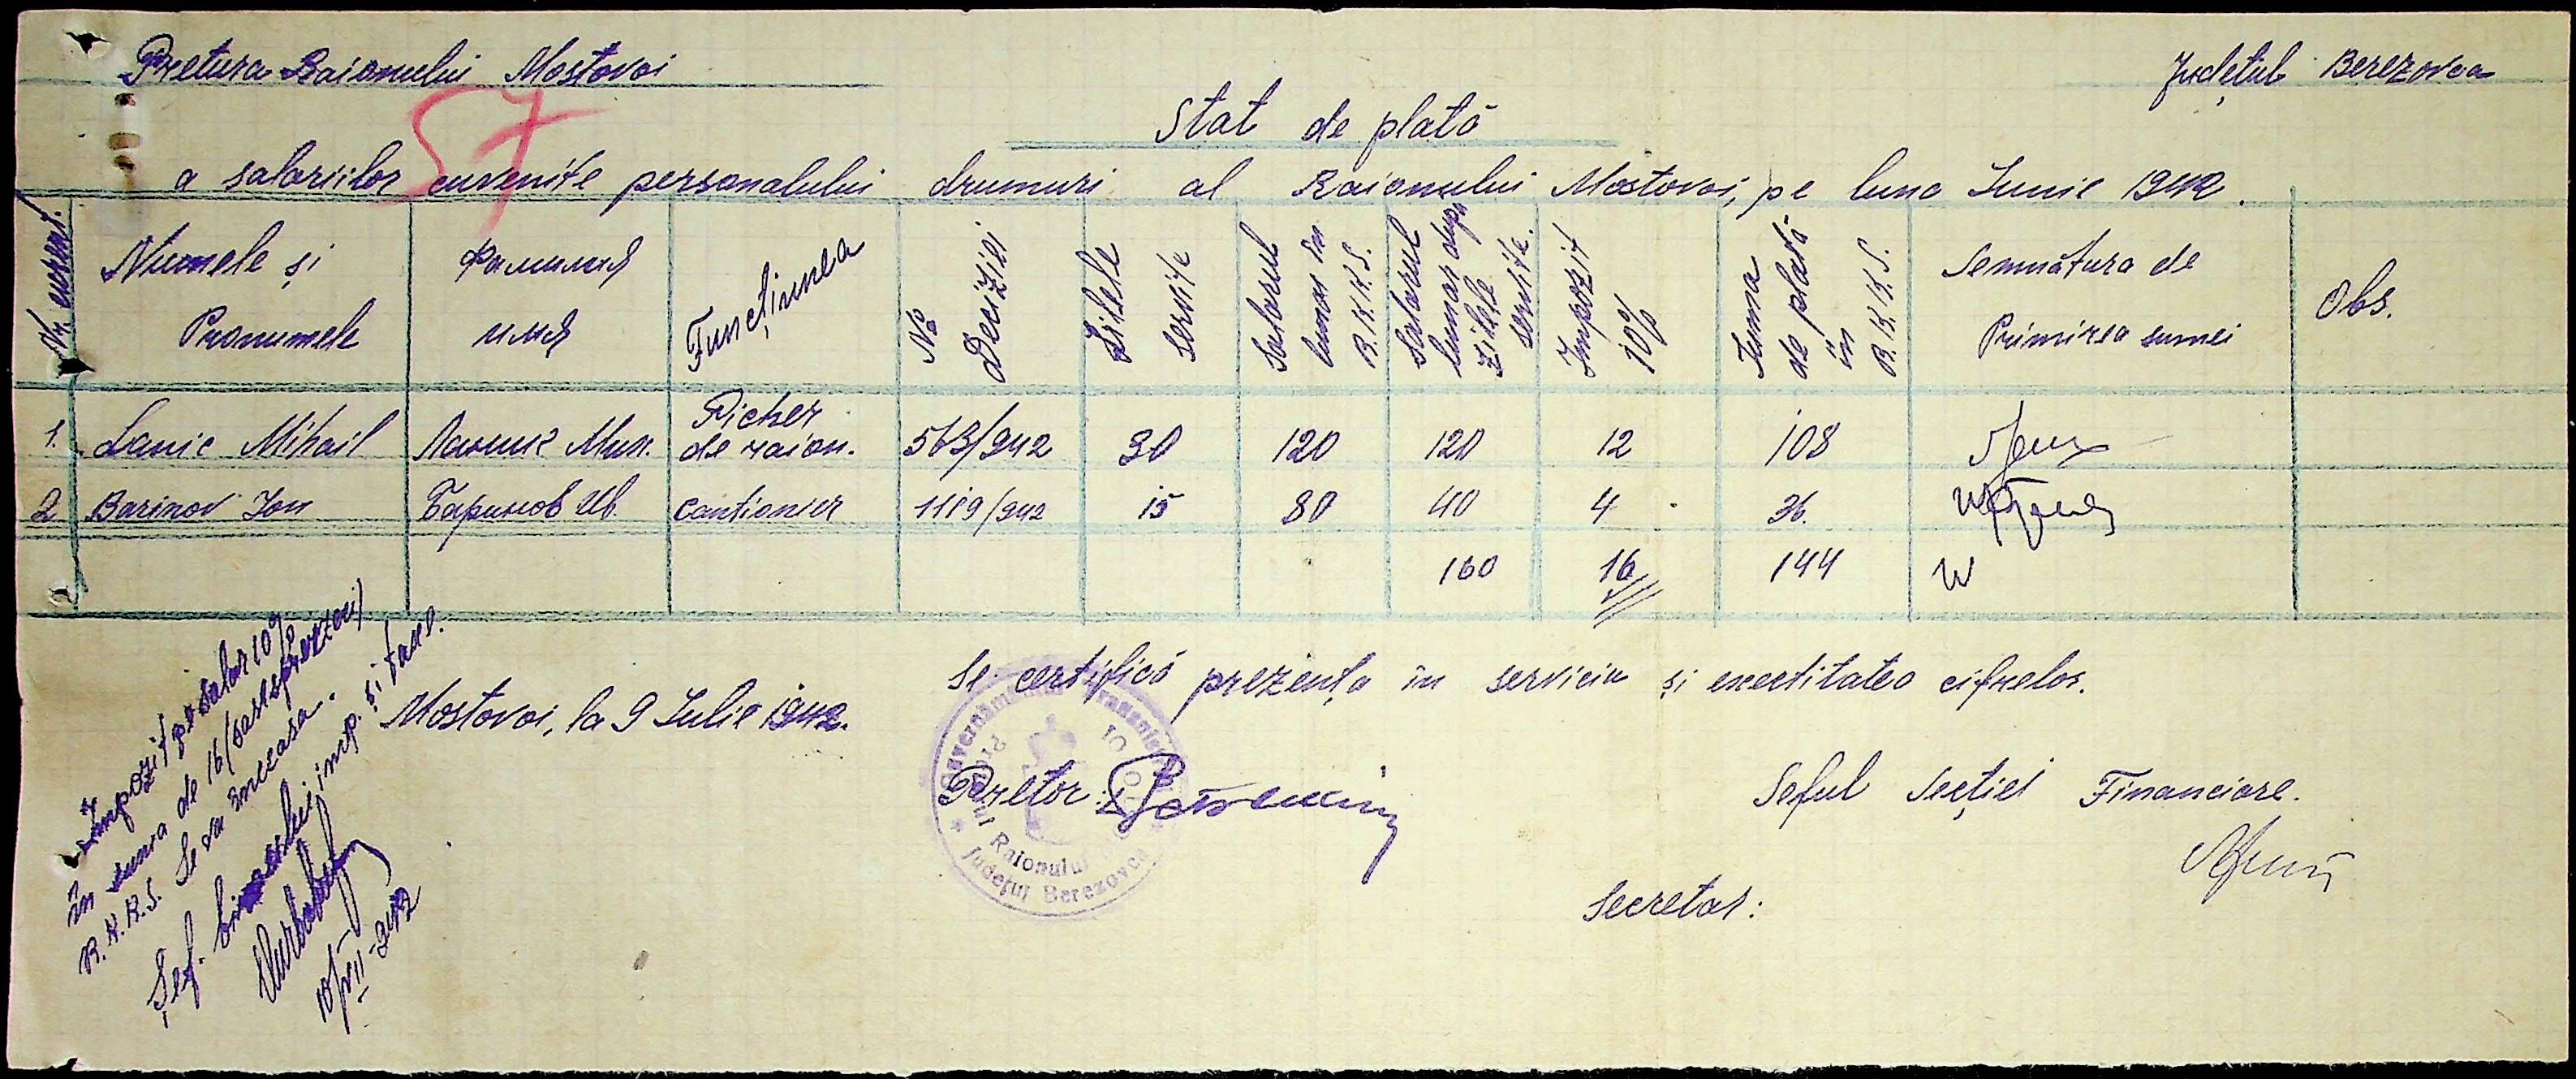 Pretura Raionului Mostovoi
Județul Berezovca
57
Stat de plată
a salariilor cuvenite personalului drumuri al Raionului Mostovoi, pe luna Iunie 1942.
Nr. curent.
Numele și
Pronumele
Фамилия
имя
Funcținea
No
Deciziei
Zilele
servite
Salarul
lunar în
R.K.K.S.
Salarul
lunar după
zilele
servite.
Impozit
10%
Suma
de plată
în
R.K.K.S.
Semnătura de
Primirea sumei
Obs.
1. Lanic Mihail Ланик Мих. Picher de raion. 563/942 30 120 120 12 108
2 Barinov Ion Баринов Ив. Cantionier 1119/942 15 80 40 4 36.
160 16 144
Se certifică prezența în serviciu și exectitatea cifrelor.
Mostovoi, la 9 Iulie 1942.
Pretor:
Șeful Secției Financiare.
Secretar:
Guvernământul Transnistriei
Pretura Raionului
Județul Berezovca
Impozit pe salar 10%
în suma de 16 (sasesprezeci)
R.K.K.S. Se va încasa.
Șef. imp. și taxe.
10/VII-942